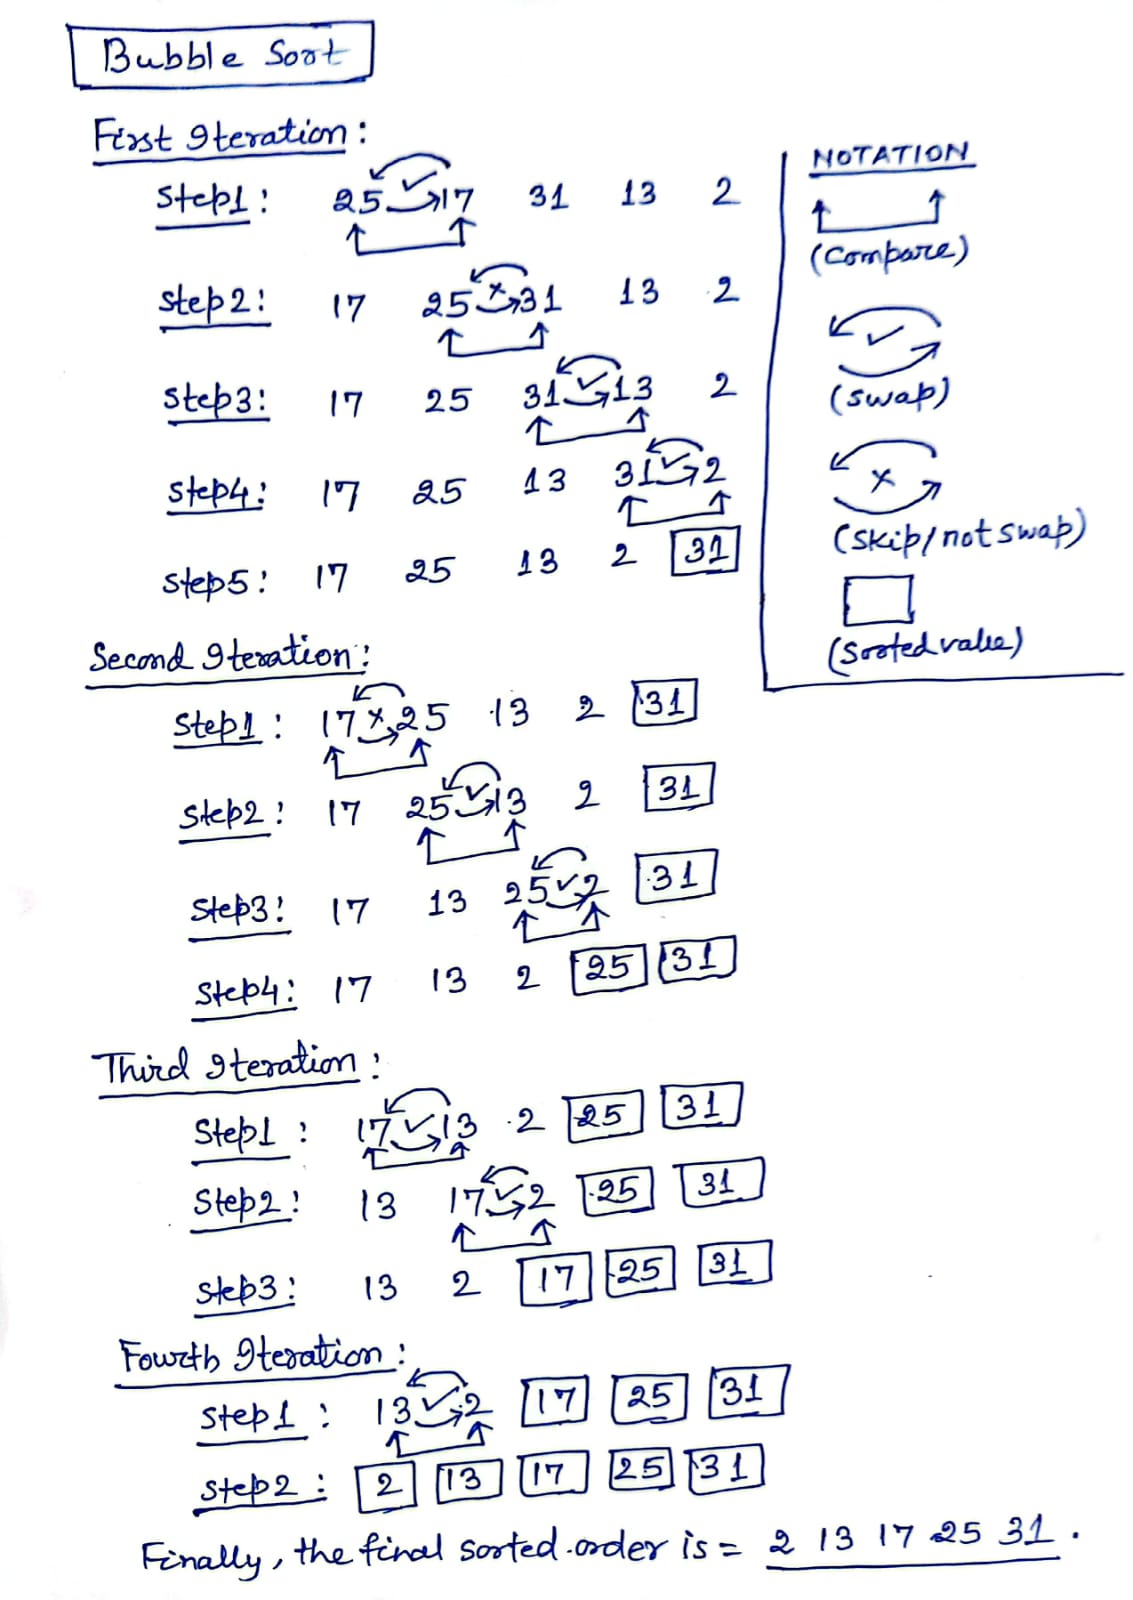 Bubble Sort
First Iteration:
Step1: 25 17 31 13 2
Step2: 17 25 31 13 2
Step3: 17 25 31 13 2
Step4: 17 25 13 31 2
Step5: 17 25 13 2 31
NOTATION
(Compare)
(swap)
(skip/not swap)
(Sorted value)
Second Iteration:
Step1: 17 25 13 2 31
Step2: 17 25 13 2 31
Step3: 17 13 25 2 31
Step4: 17 13 2 25 31
Third Iteration:
Step1: 17 13 2 25 31
Step2: 13 17 2 25 31
Step3: 13 2 17 25 31
Fourth Iteration:
Step1: 13 2 17 25 31
Step2: 2 13 17 25 31
Finally, the final sorted order is = 2 13 17 25 31.